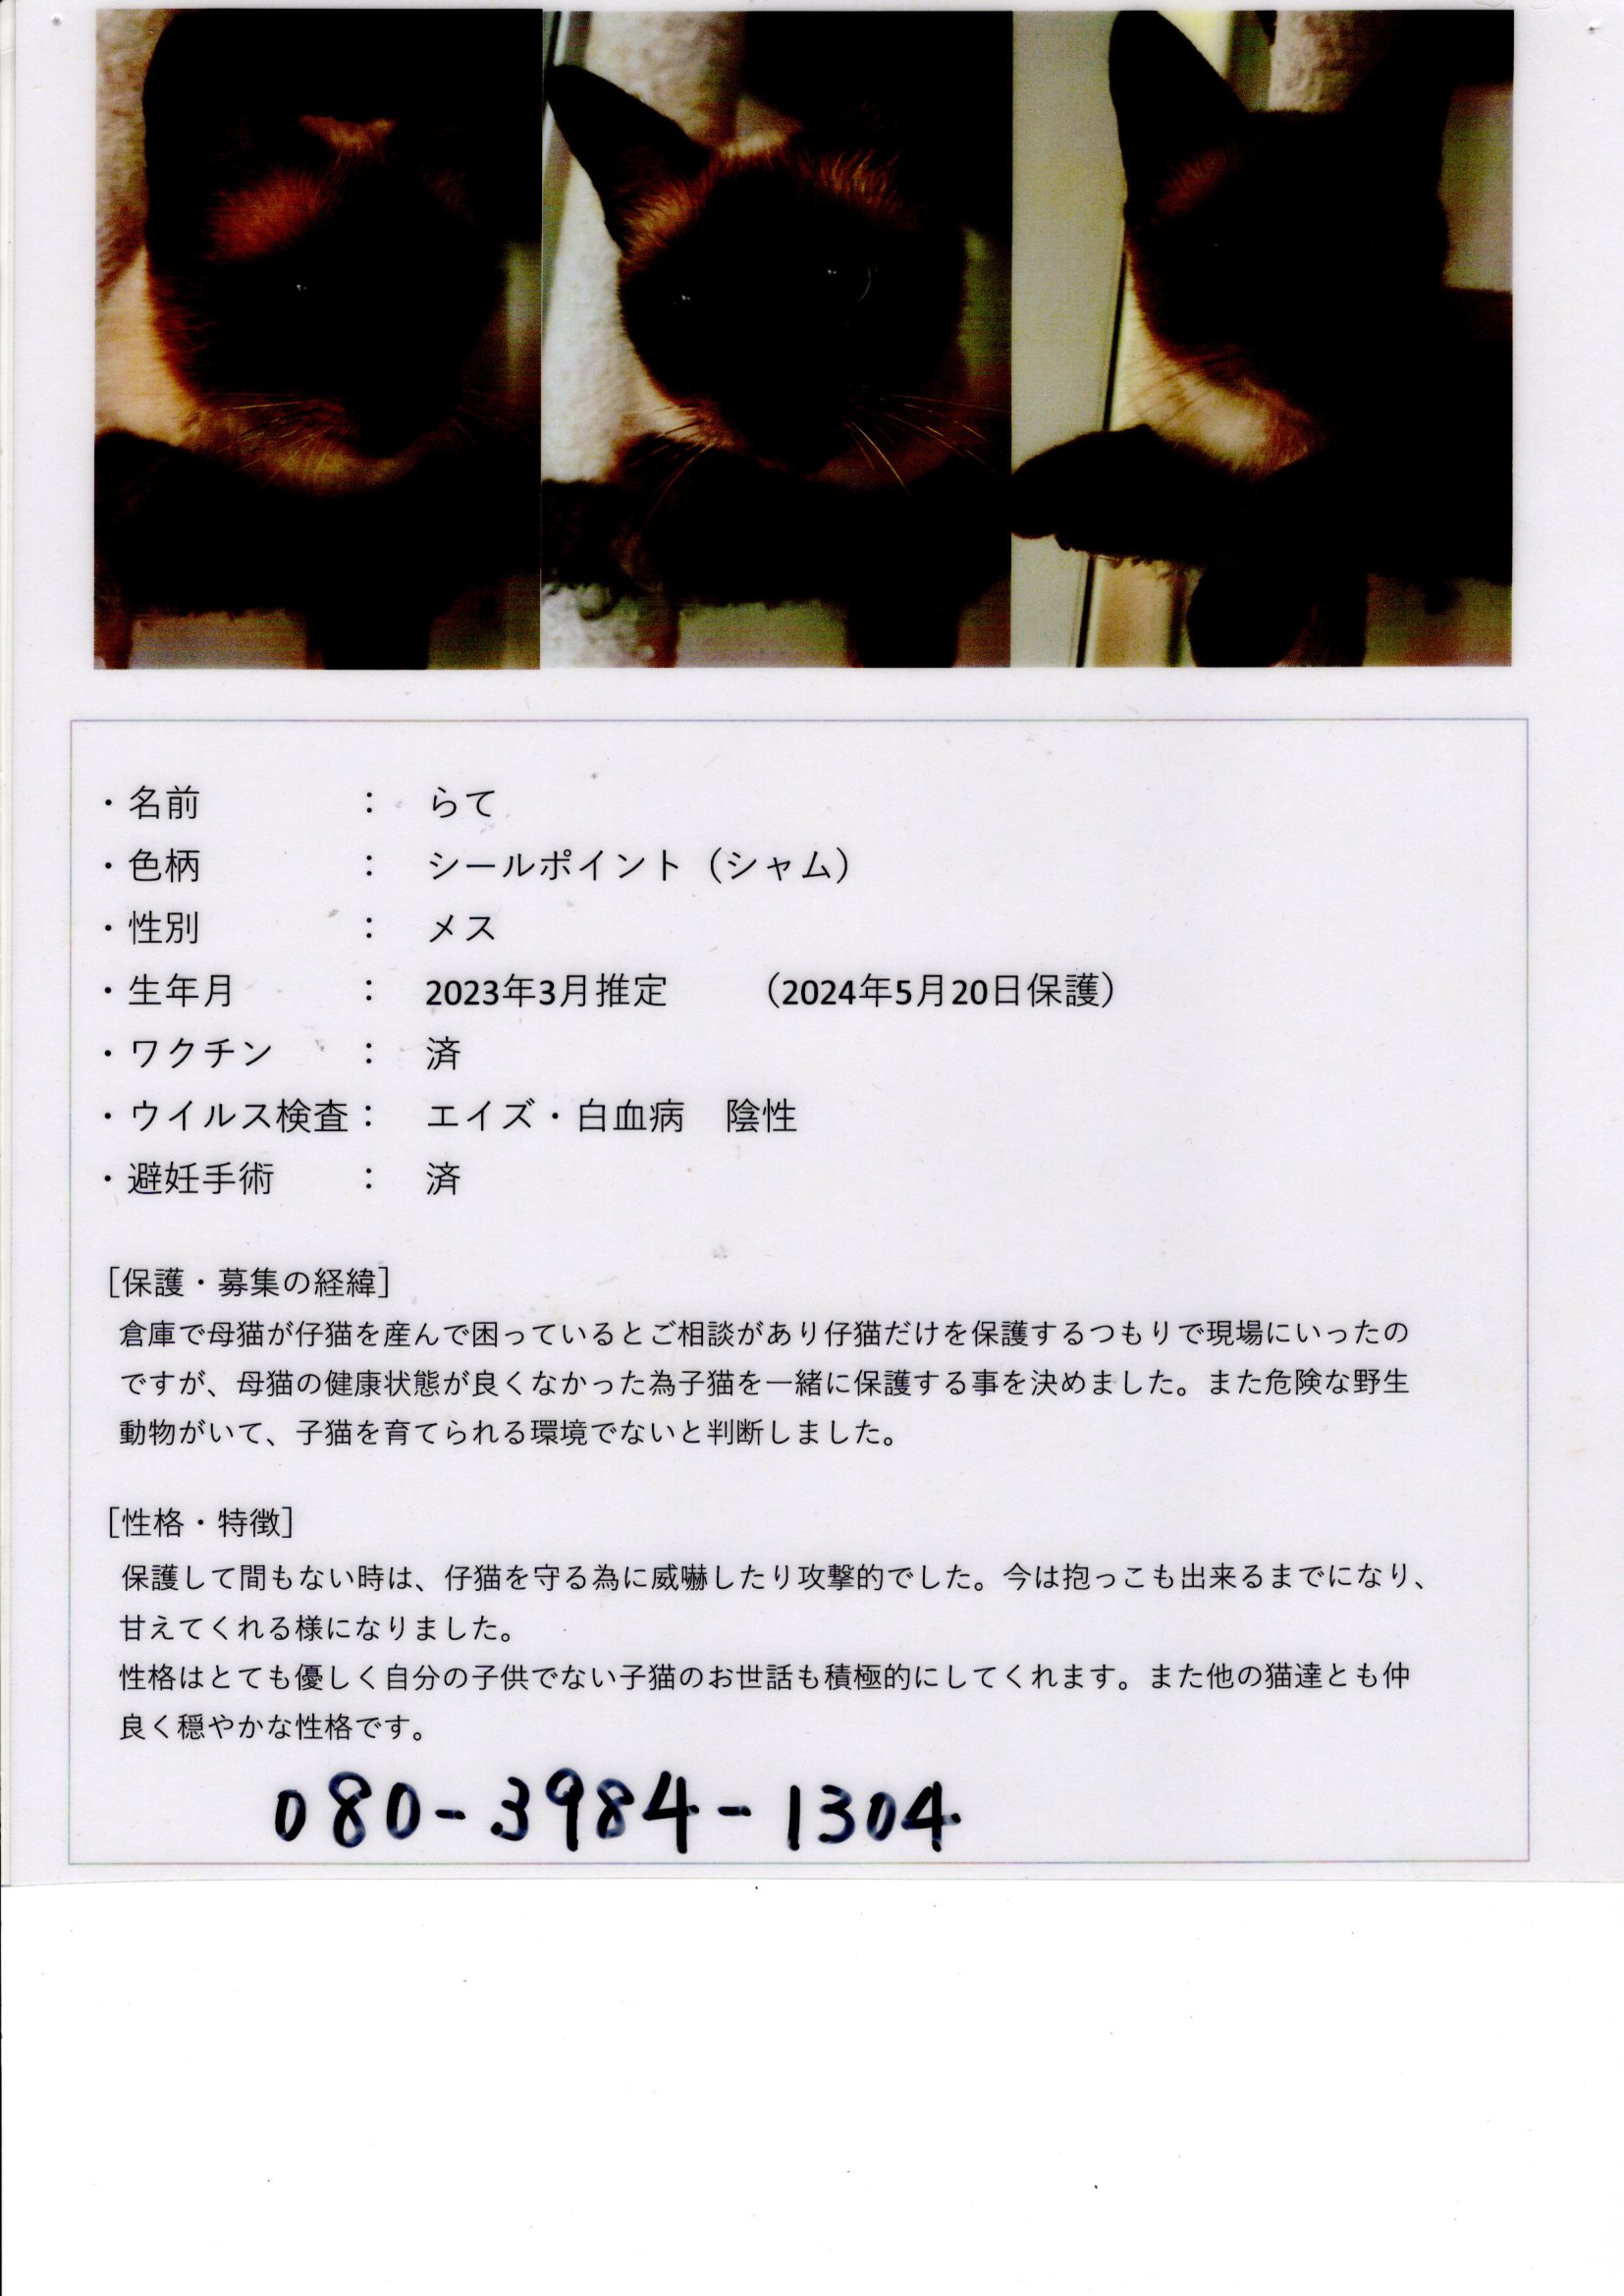 ・名前 ： らて
・色柄 ： シールポイント（シャム）
・性別 ： メス
・生年月 ： 2023年3月推定 （2024年5月20日保護）
・ワクチン ： 済
・ウイルス検査： エイズ・白血病 陰性
・避妊手術 ： 済
［保護・募集の経緯］
倉庫で母猫が仔猫を産んで困っているとご相談があり仔猫だけを保護するつもりで現場にいったの
ですが、母猫の健康状態が良くなかった為子猫を一緒に保護する事を決めました。また危険な野生
動物がいて、子猫を育てられる環境でないと判断しました。
［性格・特徴］
保護して間もない時は、仔猫を守る為に威嚇したり攻撃的でした。今は抱っこも出来るまでになり、
甘えてくれる様になりました。
性格はとても優しく自分の子供でない子猫のお世話も積極的にしてくれます。また他の猫達とも仲
良く穏やかな性格です。
080-3984-1304